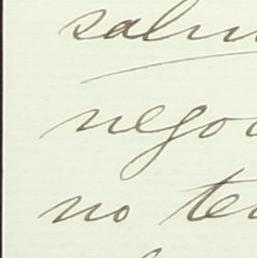 salu
nego
no te